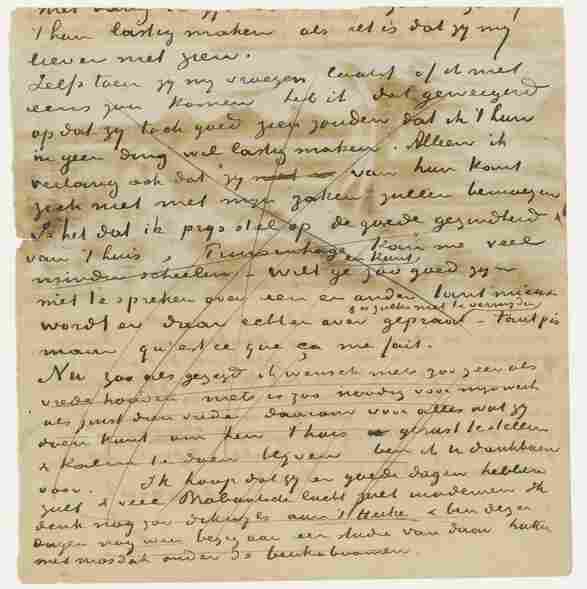 't hun lastig maken als het is dat zy my
liever niet zien.
Zelfs toen zy my vroegen laatst of ik niet
eens zou komen heb ik dat geweigerd
opdat zy toch goed zien zouden dat ik 't hun
in geen ding wil lastig maken. Alleen ik
verlang ook dat zy van hun kant
zich niet met myn zaken zullen bemoeyen
Is het dat ik prys stel op de goede gezindheid
van 't huis, Prinsenhage kan me veel
minder schelen – wilt ge zoo goed zyn
en kunt
niet te spreken over een en ander tant mieux
& is zulks niet te vermyden
wordt er daar echter over gepraat – Tant pis
maar qu'est ce que ça me fait.
Nu zoo als gezegd ik wensch niets zoo zeer als
vrede houden niets is zoo noodig voor myn werk
als juist dien vrede daarom voor alles wat gy
doen kunt om hen thuis gerust te stellen
& kalm te doen blyven ben ik u dankbaar
voor. Ik hoop dat gy er goede dagen hebben
zult & veel Brabantsche lucht zult inademen Ik
denk nog zoo dikwyls aan 't Heike & ben dezer
dagen nog weer bezig aan een studie van daar
met mosdak onder de beukeboomen.